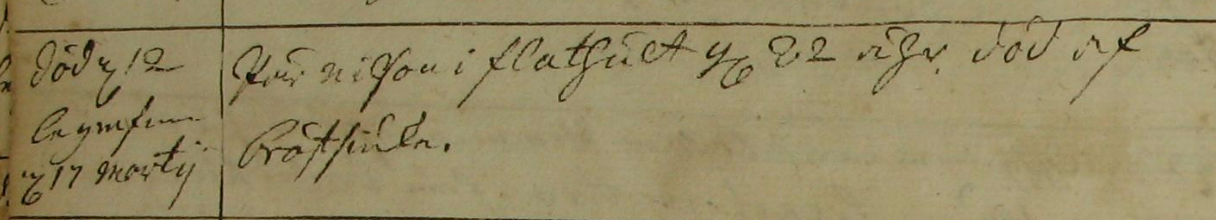 död d 12
begrafven
d 17 Martij
Pär nilson i flathult 82 åhr. död af
bröstsiuka.